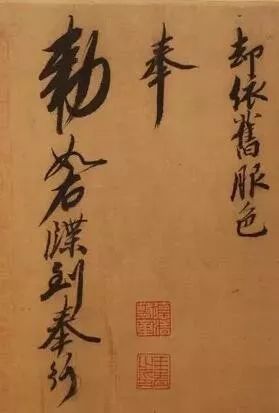 却依舊服色
奉
勅如右牒到奉行